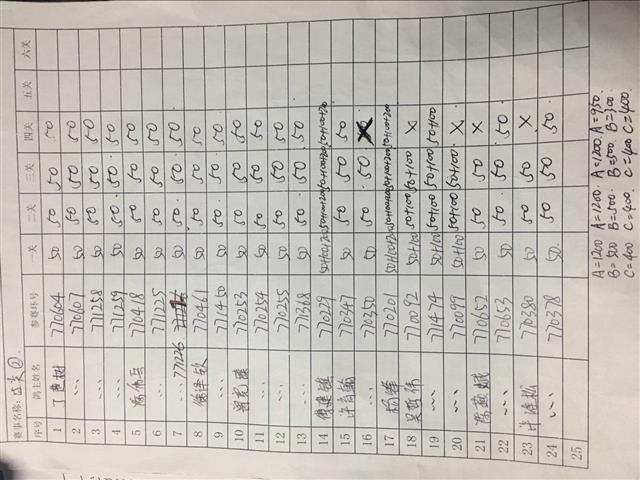 赛事名称:
序号 鸽主姓名 参赛环号 一关 二关 三关 四关 五关 六关
1 770604 50 50 50 50
2 ... 770607 50 50 50 50
3 ... 771258 50 50 50 50
4 ... 771259 50 50 50 50
5 770418 50 50 50 50
6 ... 771225 50 50 50 50
7 ... 771226 50 50 50 50
8 770461 50 50 50 50
9 ... 771450 50 50 50 50
10 770253 50 50 50 50
11 ... 770254 50 50 50 50
12 ... 770255 50 50 50 50
13 ... 771368 50 50 50 50
14 770229 50+100+200 50+100+200 50+100+200 50+100+200
15 770347 50 50 50 50
16 ... 770350 50 50 50
17 杨锋 770201 50+100+200 50+100+200 50+100+200 50+100+200
18 吴哲伟 770092 50+100 50+100 50+100 X
19 ... 771474 50+100 50+100 50+100 50+100
20 ... 770099 50+100 50+100 50+100 X
21 陈燕娥 770652 50 50 50 X
22 ... 770653 50 50 50 50
23 770380 50 50 50 X
24 ... 770378 50 50 50 50
25
A=1200 A=1200 A=1200 A=950
B=500 B=500 B=500 B=300
C=400 C=400 C=400 C=400